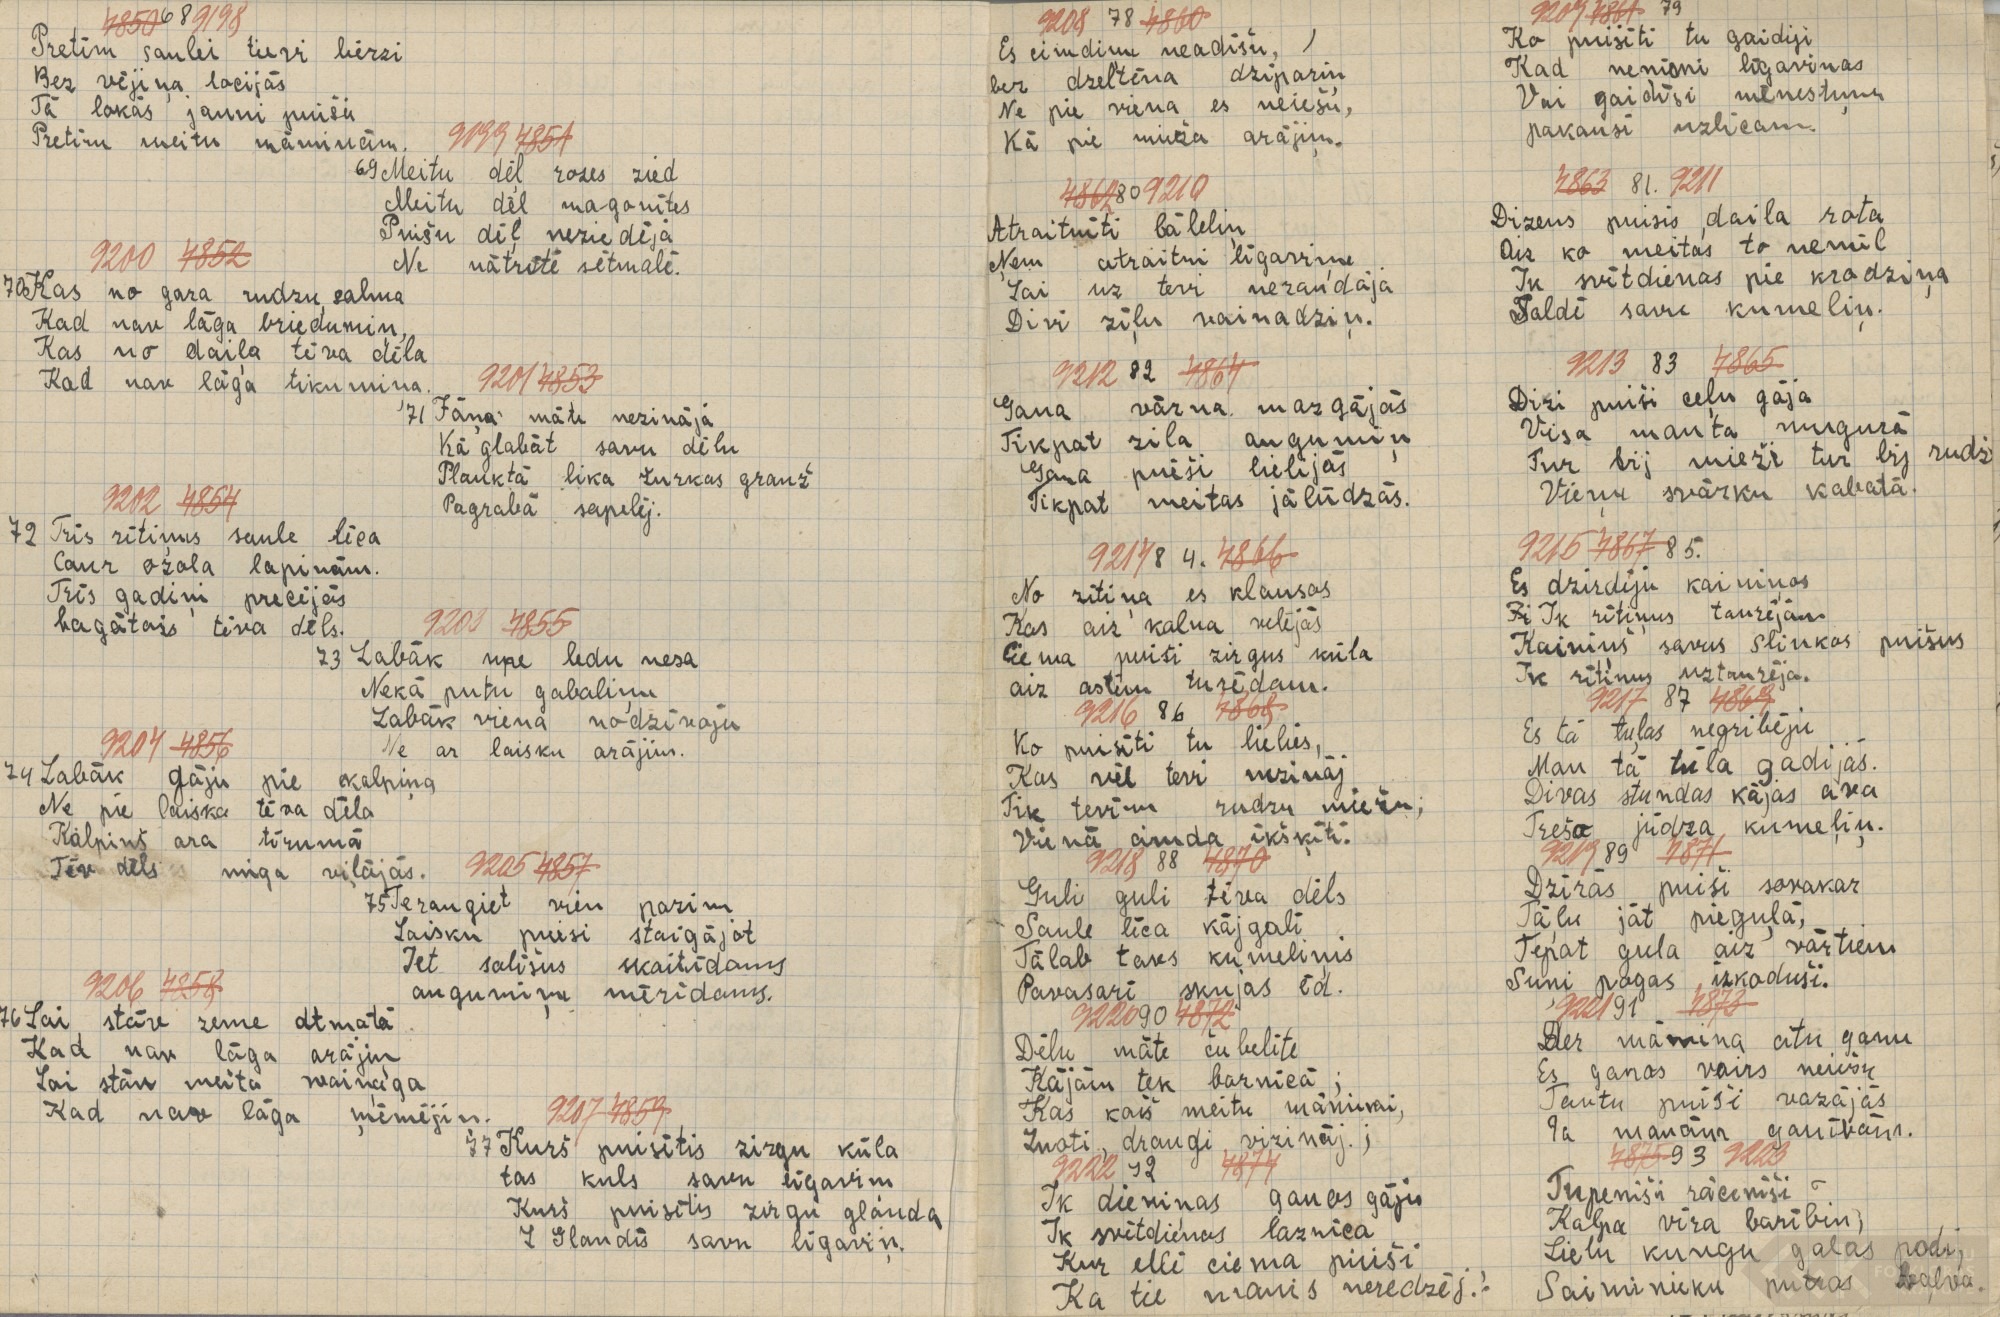 4850 68 9198
Pretim saulei tievi bērzi
Bez vējiņa locijās
Tā lokās jauni puiši
Pretim meitu māmiņām.
9099 4851
69 Meitu dēļ rozes zied
Meitu dēļ magonītes
Puišu dēļ neziedēja
Ne nātrītē sētmalē.
9200 4852
70 Kas no gara rudzu salma
Kad nav lāga briedumiņ,
Kas no daiļa tēva dēla
Kad nav lāga tikumiņa.
9201 4853
71 Jāņa māte nezināja
Kā glabāt savu dēlu
Plauktā lika žurkas grauž
Pagrabā sapelēj.
9202 4854
72 Trīs rītiņus saule lēca
Caur ozola lapiņām.
Trīs gadiņi precējās
bagātais tēva dēls.
9203 4855
73 Labāk upe ledu nesa
Nekā putu gabaliņu
Labāk viena nodzīvoju
Ne ar laisku arājiņ.
9204 4856
74 Labāk gāju pie kalpiņa
Ne pie laiska tēva dēla
Kalpiņš ara tīrumā
Tēv dēls miga viļājās.
9205 4857
75 Ieraugiet vien pazīm
Laisku puisi staigājot
Iet solīšus skaitīdams
augumiņu mērīdams.
9206 4858
76 Lai stāv zeme atmatā
Kad nav lāga arājiņ
Lai stāv meita vaiņaga
Kad nav lāga ņēmējiņ.
9207 4859
77 Kurš puisītis zirgu kūla
tas kuls savu līgaviņ
Kurš puisītis zirgu glauda
Glaudīs savu līgaviņ.
9208 78 4860
Es cimdiņu neadīšu,
bez dzeltēna dzīpariņ
Ne pie viena es neiešu,
Kā pie mieža arājiņ.
9209 4861 79
Ko puisīti tu gaidiji
Kad neņēmi līgaviņas
Vai gaidīsi mēnestiņu
pakausī uzlīcam.
4862 80 9210
Atraitnīti bāleliņ
Ņem atraitni līgaviņu
Lai uz tevi neraudāja
Divi zīļu vainadziņ.
4863 81. 9211
Dižens puisis, daiļa rota
Aiz ko meitas to nemīl
Ik svētdienas pie krodziņa
Saldē savu kumeliņ.
9212 82 4864
Gana vārna mazgājās
Tikpat zila augumiņ
Gana puiši lielījās
Tikpat meitas jālūdzās.
9213 83 4865
Diži puiši ceļu gāja
Visa manta mugurā
Tur bij mieži tur bij rudzi
Vienu svārku kabatā.
9214 84. 4866
No rītiņa es klausos
Kas aiz kalna velējās
Ciema puiši zirgus kūla
aiz astēm turēdam.
9215 4867 85.
Es dzirdēju kaimiņos
Ik rītiņus taurējam
Kaimiņš savus slinkos puišus
Ik rītiņus uztaurēja.
9216 86 4868
Ko puisīti tu lielies,
Kas vēl tevi nezināj
Tik tevim rudzu miežu,
Vienā cimda īkšķītī.
9217 87 4869
Es tā tuļas negribēju
Man tā tūla gadijās.
Divas stundas kājas āva
Trešo jūdza kumeliņ.
9218 88 4870
Guli guli tēva dēls
Saule lēca kājgalī
Tālab tavs kumeliņis
Pavasarī skujas ēd.
9219 89 4871
Dzīrās puiši sovakar
Tālu jāt pieguļā,
Tepat guļa aiz vārtiem
Suņi pogas izkoduši.
9220 90 4872
Dēlu māte čubelīte
Kājām tek baznīcā;
Kas kaiš meitu māmiņai,
Znoti, draugi vizināj.;
9221 91 4873
Der māmiņa citu ganu
Es ganos vairs neiešu
Tautu puiši vazājās
Pa manām ganībām.
9222 92 4874
Ik dieniņas ganos gāju
Ik svētdienas baznīca
Kur elli ciema puiši
Ka tie manis neredzēj.!
4875 93 9223
Tupenīši rāceniši
Kalpa vīra barībiņ,
Lielu kungu galas podi,
Saiminieku putras bļoda.